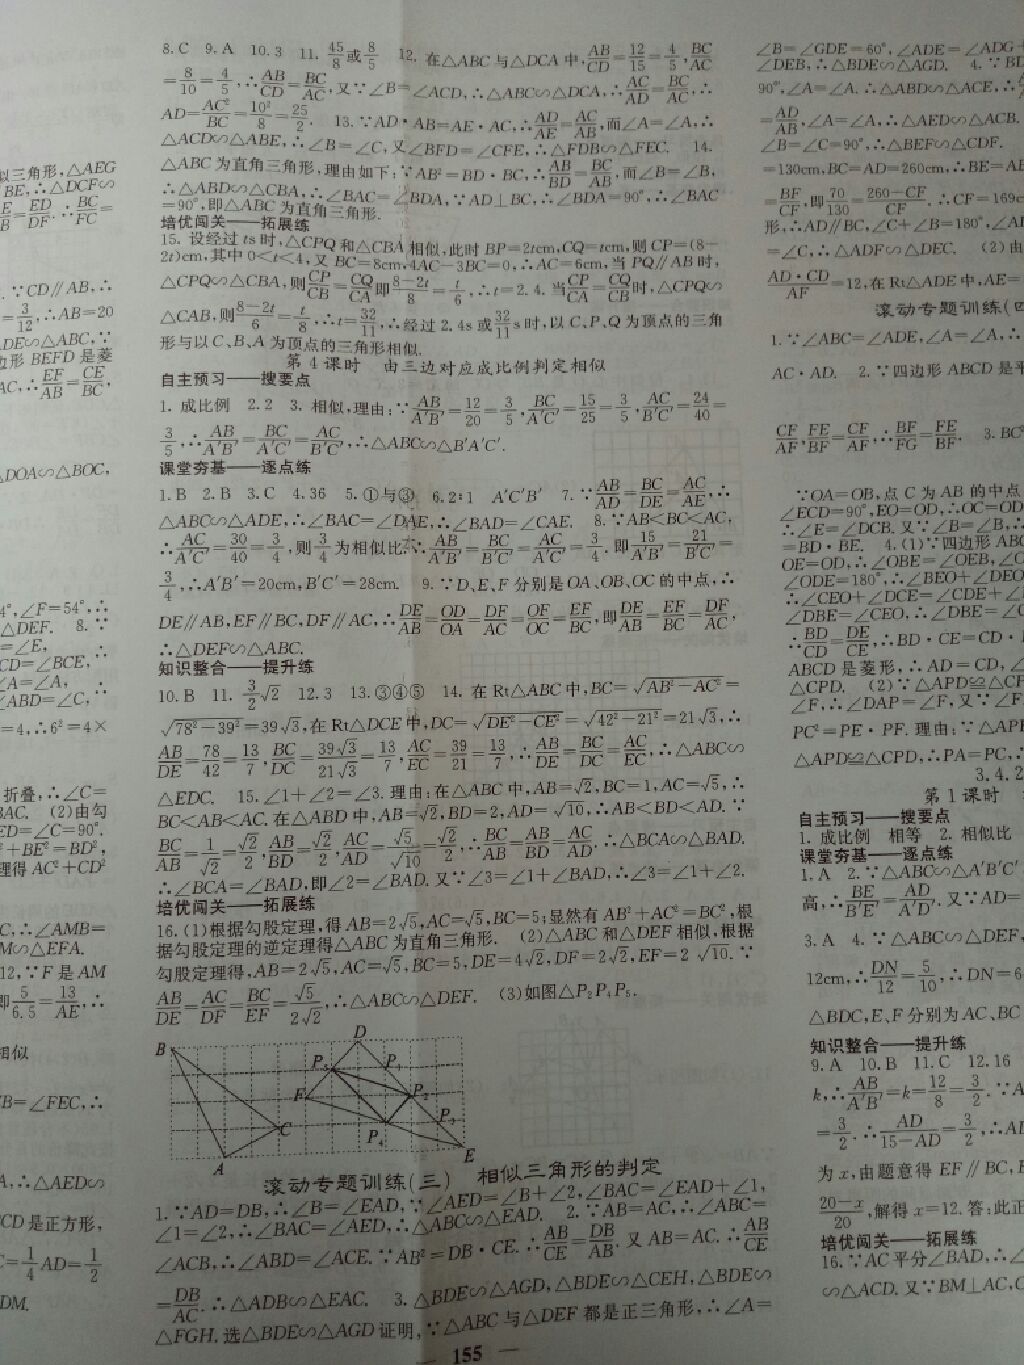 8.C 9.A 10.3 11. 45/8 或 8/5 12. 在△ABC与△DCA中, AB/CD=12/15=4/5, BC/AC
=8/10=4/5, ∴AB/CD=BC/AC, 又∵∠B=∠ACD, ∴△ABC∽△DCA, ∴AC/AD=BC/AC, ∴
AD=AC²/BC=10²/8=25/2. 13. ∵AD·AB=AE·AC, ∴AD/AE=AC/AB, 而∠A=∠A, ∴
△ACD∽△ABE, ∴∠B=∠C, 又∠BFD=∠CFE, ∴△FDB∽△FEC. 14.
△ABC为直角三角形, 理由如下: ∵AB²=BD·BC, ∴AB/BD=BC/AB, 而∠B=∠B,
∴△ABD∽△CBA, ∴∠BAC=∠BDA, ∵AD⊥BC, ∴∠BDA=90°, ∴∠BAC
=90°, 即△ABC为直角三角形.
培优闯关——拓展练
15. 设经过ts时, △CPQ和△CBA相似, 此时BP=2tcm, CQ=tcm, 则CP=(8-
2t)cm, 其中0<t<4, 又BC=8cm, 4AC-3BC=0, ∴AC=6cm, 当PQ∥AB时,
△CPQ∽△CBA, 则CP/CB=CQ/CA即(8-2t)/8=t/6, ∴t=2.4. 当CP/CA=CQ/CB时, △CPQ∽
△CAB, 则(8-2t)/6=t/8, ∴t=32/11, ∴经过2.4s或32/11 s时, 以C、P、Q为顶点的三角
形与以C、B、A为顶点的三角形相似.
第4课时 由三边对应成比例判定相似
自主预习——搜要点
1. 成比例 2.2 3. 相似, 理由: ∵AB/A′B′=12/20=3/5, BC/A′C′=15/25=3/5, AC/B′C′=24/40=
3/5, ∴AB/A′B′=BC/A′C′=AC/B′C′, ∴△ABC∽△B′A′C′.
课堂夯基——逐点练
1.B 2.B 3.C 4.36 5.①与③ 6.2∶1 A′C′B′ 7. ∵AB/AD=BC/DE=AC/AE, ∴
△ABC∽△ADE, ∴∠BAC=∠DAE, ∴∠BAD=∠CAE. 8. ∵AB<BC<AC,
∴AC/A′C′=30/40=3/4, 则3/4为相似比. ∴AB/A′B′=BC/B′C′=AC/A′C′=3/4. 即15/A′B′=21/B′C′=
3/4, ∴A′B′=20cm, B′C′=28cm. 9. ∵D、E、F分别是OA、OB、OC的中点, ∴
DE∥AB, EF∥BC, DF∥AC, ∴DE/AB=OD/OA=DF/AC=OF/OC=EF/BC, 即DE/AB=EF/BC=DF/AC,
∴△DEF∽△ABC.
知识整合——提升练
10.B 11. 3/2√2 12.3 13.③④⑤ 14. 在Rt△ABC中, BC=√(AB²-AC²)=
√(78²-39²)=39√3, 在Rt△DCE中, DC=√(DE²-CE²)=√(42²-21²)=21√3, ∴
AB/DE=78/42=13/7, BC/DC=39√3/21√3=13/7, AC/EC=39/21=13/7, ∴AB/DE=BC/DC=AC/EC, ∴△ABC∽
△EDC. 15. ∠1+∠2=∠3. 理由: 在△ABC中, AB=√2, BC=1, AC=√5, ∴
BC<AB<AC. 在△ABD中, AB=√2, BD=2, AD=√10, ∴AB<BD<AD. ∵
BC/AB=1/√2=√2/2, AB/BD=√2/2, AC/AD=√5/√10=√2/2, ∴BC/AB=AB/BD=AC/AD. ∴△BCA∽△BAD.
∴∠BCA=∠BAD, 即∠2=∠BAD. 又∵∠3=∠1+∠BAD, ∴∠3=∠1+∠2.
培优闯关——拓展练
16. (1)根据勾股定理, 得AB=2√5, AC=√5, BC=5; 显然有AB²+AC²=BC², 根
据勾股定理的逆定理得△ABC为直角三角形. (2)△ABC和△DEF相似, 根据
勾股定理得, AB=2√5, AC=√5, BC=5, DE=4√2, DF=2√2, EF=2√10. ∵
AB/DE=AC/DF=BC/EF=√5/2√2, ∴△ABC∽△DEF. (3)如图△P₂P₄P₅.
B
A
C
D
P₅
P₁
F
P₂
P₄
P₃
E
滚动专题训练(三) 相似三角形的判定
1. ∵AD=DB, ∴∠B=∠EAD, ∵∠AED=∠B+∠2, ∠BAC=∠EAD+∠1,
∠1=∠2, ∴∠BAC=∠AED, ∴△ABC∽△EAD. 2. ∵AB=AC, ∴∠ABC=
∠ACB, ∴∠ABD=∠ACE. ∵AB²=DB·CE. ∴AB/CE=DB/AB. 又AB=AC. ∴AB/CE
=DB/AC. ∴△ADB∽△EAC. 3. △BDE∽△AGD, △BDE∽△CEH, △BDE∽
△FGH. 选△BDE∽△AGD证明, ∵△ABC与△DEF都是正三角形, ∴∠A=
— 155 —
∠B=∠GDE=60°, ∠ADE=∠ADG+
∠DEB, ∴△BDE∽△AGD. 4. ∵BD
90°, ∠A=∠A. ∴△ABD∽△ACE, ∴
=AD/AB, ∠A=∠A, ∴△AED∽△ACB.
∠B=∠C=90°, ∴△BEF∽△CDF.
=130cm, BC=AD=260cm, ∴BE=AB
=BF/CF, 即70/130=(260-CF)/CF. ∴CF=169c
形, ∴AD∥BC, ∠C+∠B=180°, ∠A
=∠C, ∴△ADF∽△DEC. (2)由
AD·CD/AF=12, 在Rt△ADE中, AE=
滚动专题训练(四
1. ∵∠ABC=∠ADE, ∠A=∠A, ∴
AC·AD. 2. ∵四边形ABCD是平
CF/AF, FE/BF=CF/AF, ∴BF/FG=FE/BF. 3. BC²
∵OA=OB, 点C为AB的中点
∠ECD=90°, EO=OD, ∴OC=OD
∴∠E=∠DCB. 又∵∠B=∠B, ∴
=BD·BE. 4. (1)∵四边形ABC
OE=OD, ∴∠OBE=∠OEB, ∠O
∠ODE=180°, ∴∠BEO+∠DEO
∴∠CEO+∠DCE=∠CDE+∠
∠DBE=∠CEO, ∴∠DBE=∠C
∴BD/CD=DE/CE, ∴BD·CE=CD·
ABCD是菱形, ∴AD=CD, ∠
△CPD. (2)∵△APD≌△CP
∠F, ∴∠DAP=∠F, 又∵∠F
PC²=PE·PF. 理由: ∵△APD
△APD≌△CPD, ∴PA=PC, ∴
3.4.2
第1课时
自主预习——搜要点
1. 成比例 相等 2. 相似比
课堂夯基——逐点练
1.A 2. ∵△ABC∽△A′B′C′
高, ∴BE/B′E′=AD/A′D′. 又∵AD=
3.A 4. ∵△ABC∽△DEF,
12cm, ∴DN/12=5/10, ∴DN=6
△BDC, E、F分别为AC、BC
知识整合——提升练
9.A 10.B 11.C 12.16
k, ∴AB/A′B′=k=12/8=3/2. ∵A
=3/2. ∴AD/(15-AD)=3/2, ∴AD
为x, 由题意得EF∥BC,
(20-x)/20, 解得x=12. 答: 此正
培优闯关——拓展练
16. ∵AC平分∠BAD, ∴∠
∽△ACD. 又∵BM⊥AC,